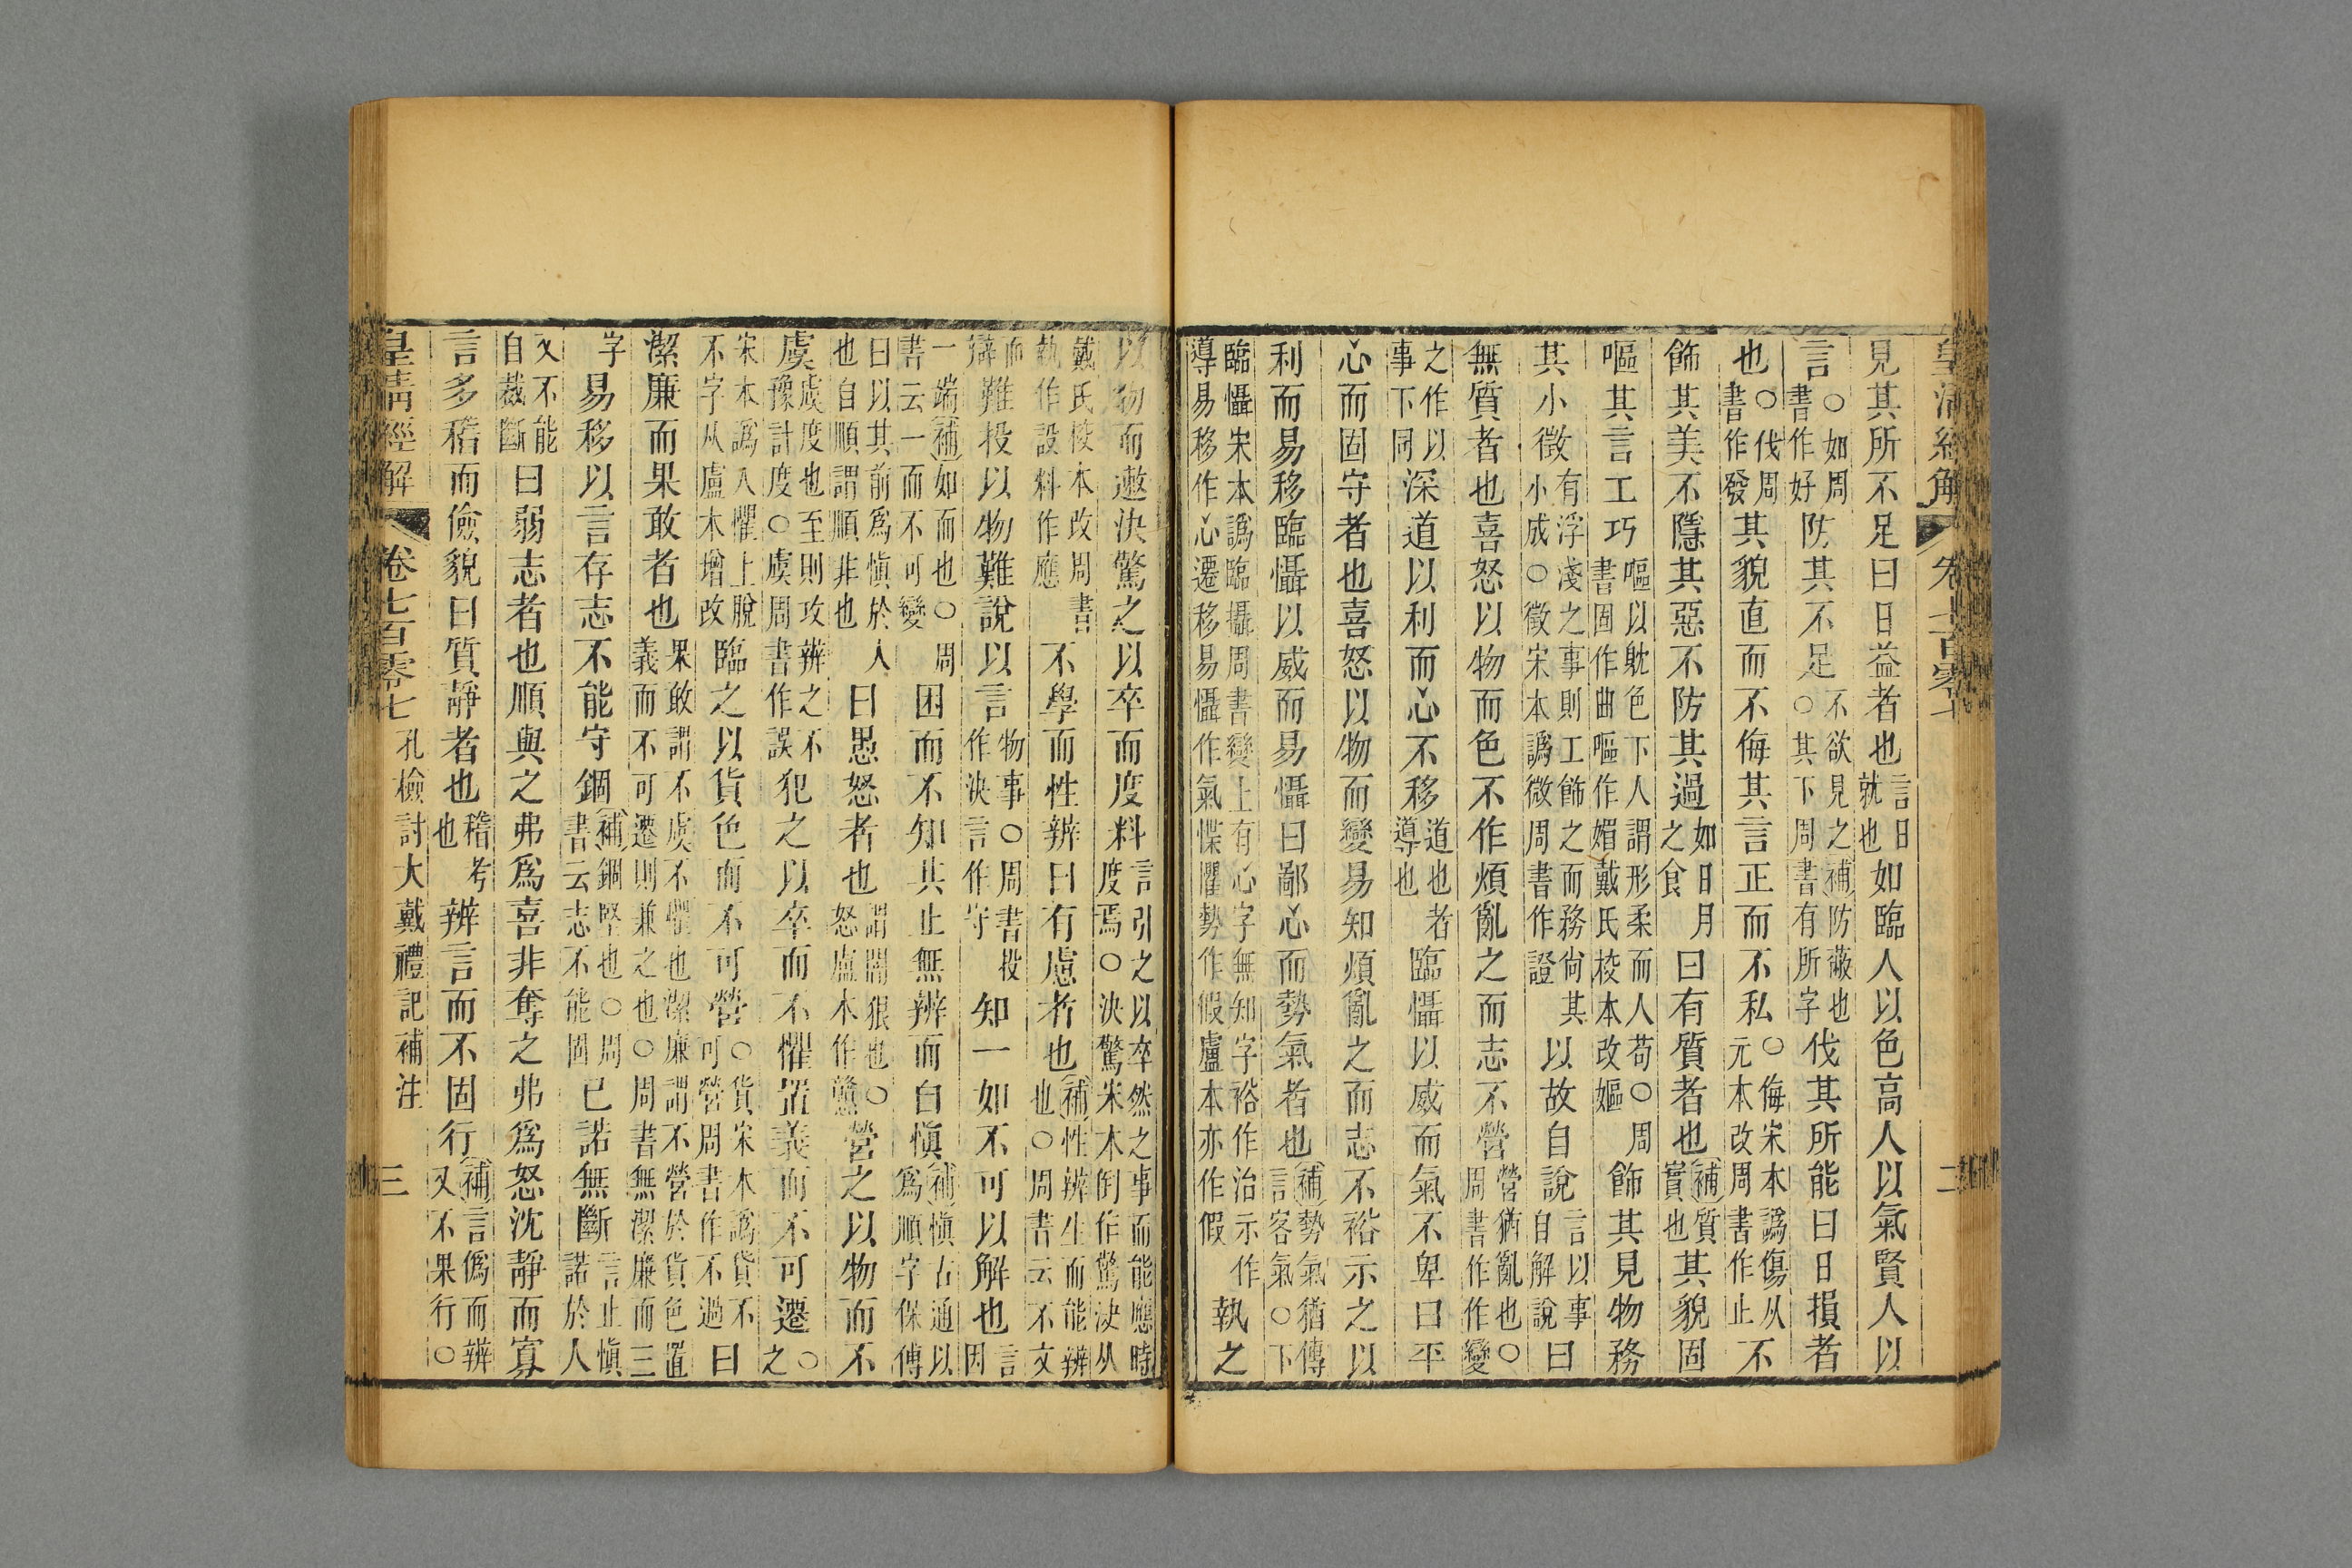 皇清經解 卷七百零七 二
見其所不足曰日益者也言日就也如臨人以色高人以氣賢人以
言○如周書作好防其不足不欲見之補防蔽也○其下周書有所字伐其所能曰日損者
也○伐周書作發其貌直而不侮其言正而不私○侮宋本譌傷从元本改周書作止不
飾其美不隱其惡不防其過如日月之食曰有質者也補質實也其貌固
嘔其言工巧嘔以躭色下人謂形柔而人苟○周書固作曲嘔作媚戴氏校本改嫗飾其見物務
其小徵有浮淺之事則工飾之而務尙其小成○徵宋本譌微周書作證以故自說言以事自解說曰
無質者也喜怒以物而色不作煩亂之而志不營營猶亂也○周書作作變
之作以事下同深道以利而心不移道也者導也臨懾以威而氣不卑曰平
心而固守者也喜怒以物而變易知煩亂之而志不裕示之以
利而易移臨懾以威而易懾曰鄙心而勢氣者也補勢氣猶傳言客氣○下
臨懾宋本譌臨攝周書變上有心字無知字裕作治示作導易移作心遷移易懾作氣慄懼勢作假盧本亦作假執之
以物而遬決驚之以卒而度料言引之以卒然之事而能應時度焉○決驚宋本倒作驚決从
戴氏校本改周書執作設料作應不學而性辨曰有慮者也補性辨生而能辨也○周書云不文
而辯難投以物難說以言物事○周書投作決言作守知一如不可以解也言因
一端補如而也○周書云一而不可變困而不知其止無辨而自愼補愼古通以爲順字保傅
曰以其前爲愼於人也自順謂順非也曰愚怒者也謂闇狠也○怒盧本作戇營之以物而不
虞虞度也至則攻辨之不豫計度○虞周書作誤犯之以卒而不懼置義而不可遷○之
宋本譌入懼上脫不字从盧本增改臨之以貨色而不可營○貨宋本譌貸不可營周書作不過曰
潔廉而果敢者也果敢謂不虞不懼也潔廉謂不營於貨色置義而不可遷則兼之也○周書無潔廉而三
字易移以言存志不能守錮補錮堅也○周書云志不能固已諾無斷言止愼諾於人
又不能自裁斷曰弱志者也順與之弗爲喜非奪之弗爲怒沈靜而寡
言多稽而儉貌曰質靜者也稽考也辨言而不固行補言僞而辨又不果行○
皇清經解 卷七百零七 孔檢討大戴禮記補注 三